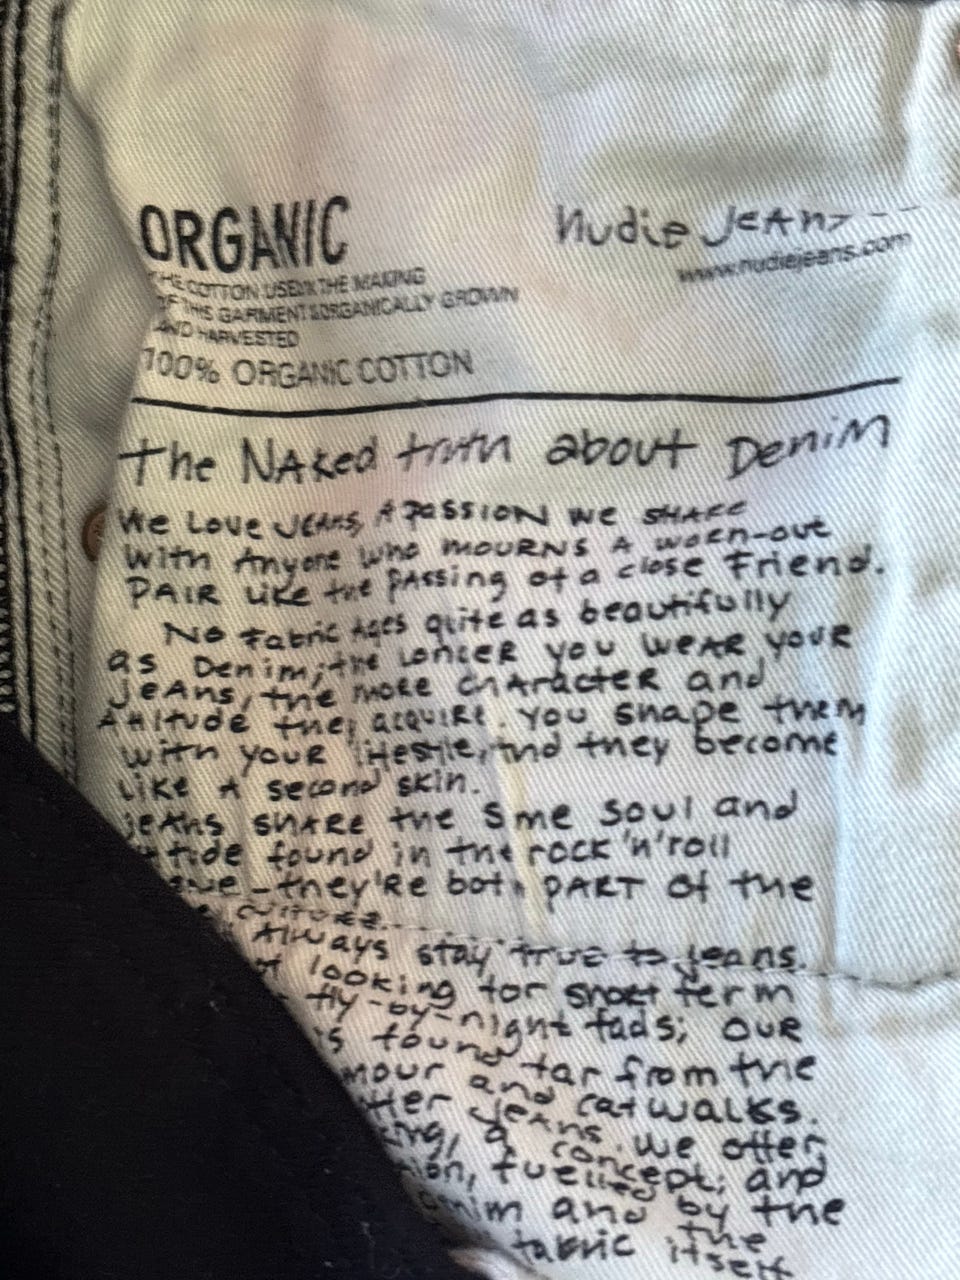 ORGANIC
THE COTTON USED IN THE MAKING
OF THIS GARMENT IS ORGANICALLY GROWN
AND HARVESTED
100% ORGANIC COTTON
nudie Jeans
www.nudiejeans.com
The Naked truth about Denim
We Love Jeans, A passion we share
with Anyone who mourns a worn-out
pair like the passing of a close Friend.
No fabric ages quite as beautifully
as Denim; the longer you wear your
jeans, the more character and
attitude they acquire. You shape them
with your lifestyle, and they become
like a second skin.
jeans share the same soul and
found in the rock'n'roll
they're both part of the
culture
Always stay true to jeans.
looking for short term
fly-by-night fads; our
found far from the
and catwalks.
jeans. We offer
a concept; and
fuelled by the
and the
fabric itself